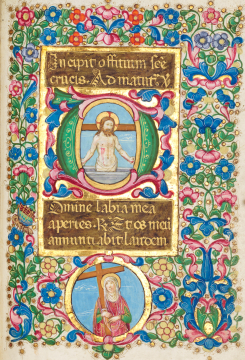 Incipit offitium sce
crucis. Ad matut. V
Omine labia mea
aperies. R. Et os meū
annuntiabit laudem